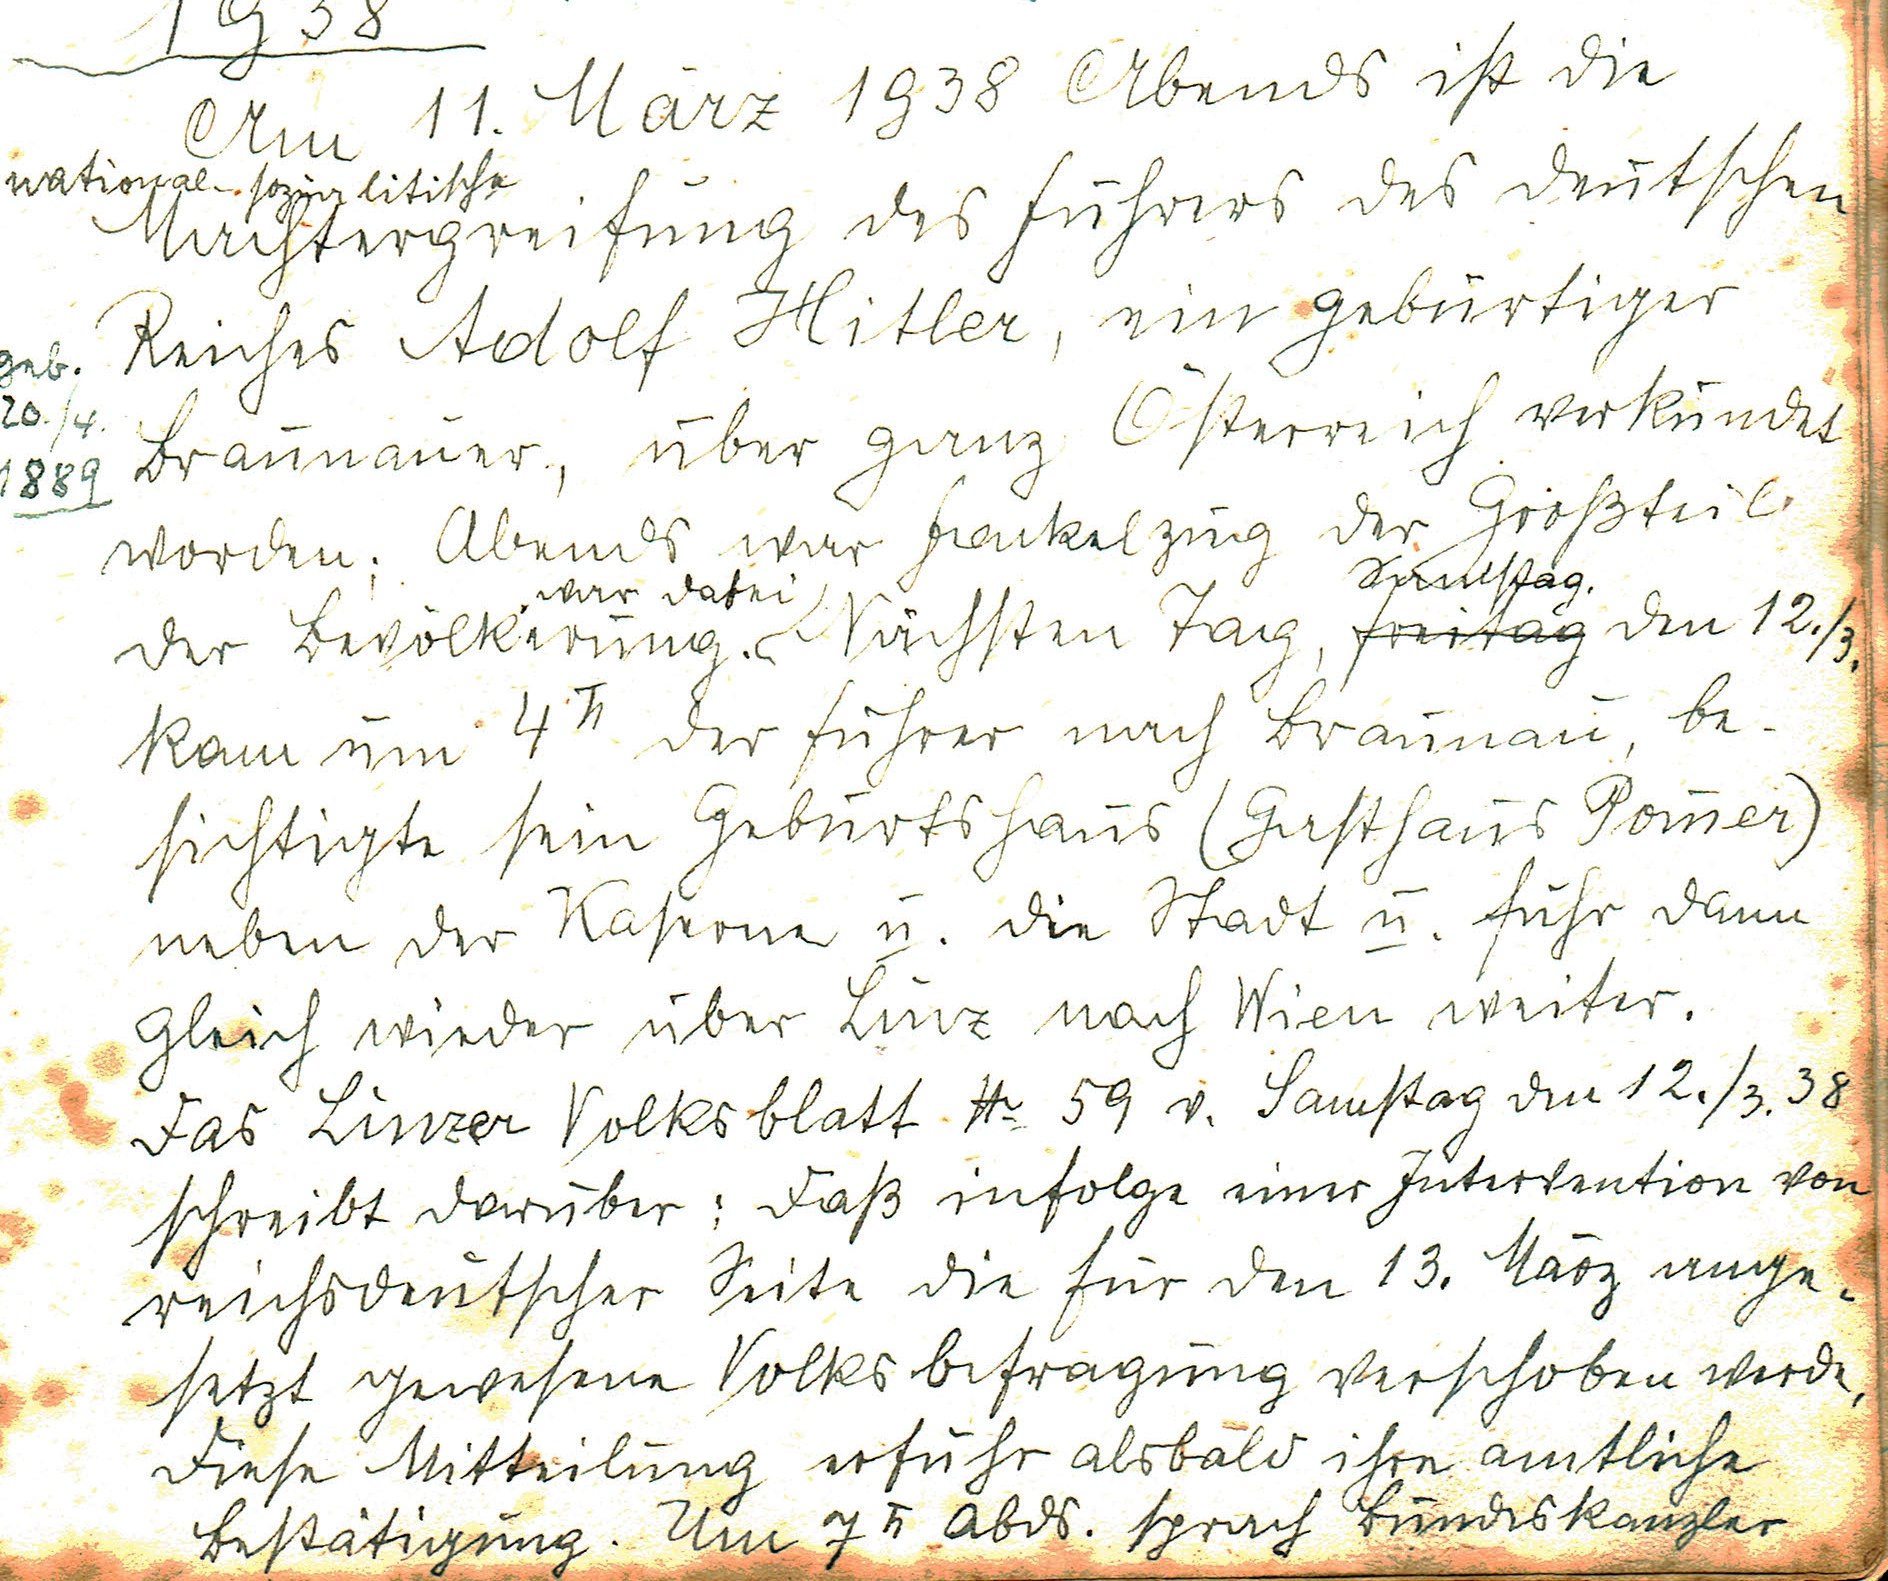 1938
Am 11. März 1938 Abends ist die
national-sozialitische
Machtergreifung des Führers des deutschen
Reiches Adolf Hitler, ein gebürtiger
geb.
20./4.
1889
Braunauer, über ganz Österreich verkündet
worden; Abends war Fackelzug der Großteil
der Bevölkerung war dabei. Nächsten Tag, Freitag Samstag. den 12./3.
kam um 4h der Führer nach Braunau, be-
sichtigte sein Geburtshaus (Gasthaus Pomer)
neben der Kaserne u. die Stadt u. fuhr dann
gleich wieder über Linz nach Wien weiter.
Das Linzer Volksblatt Nr 59 v. Samstag den 12./3. 38
schreibt darüber: Daß infolge einer Intervention von
reichsdeutscher Seite die für den 13. März ange-
setzt gewesene Volksbefragung verschoben werde,
Diese Mitteilung erfuhr alsbald ihre amtliche
Bestätigung. Um 7h abds. sprach Bundeskanzler